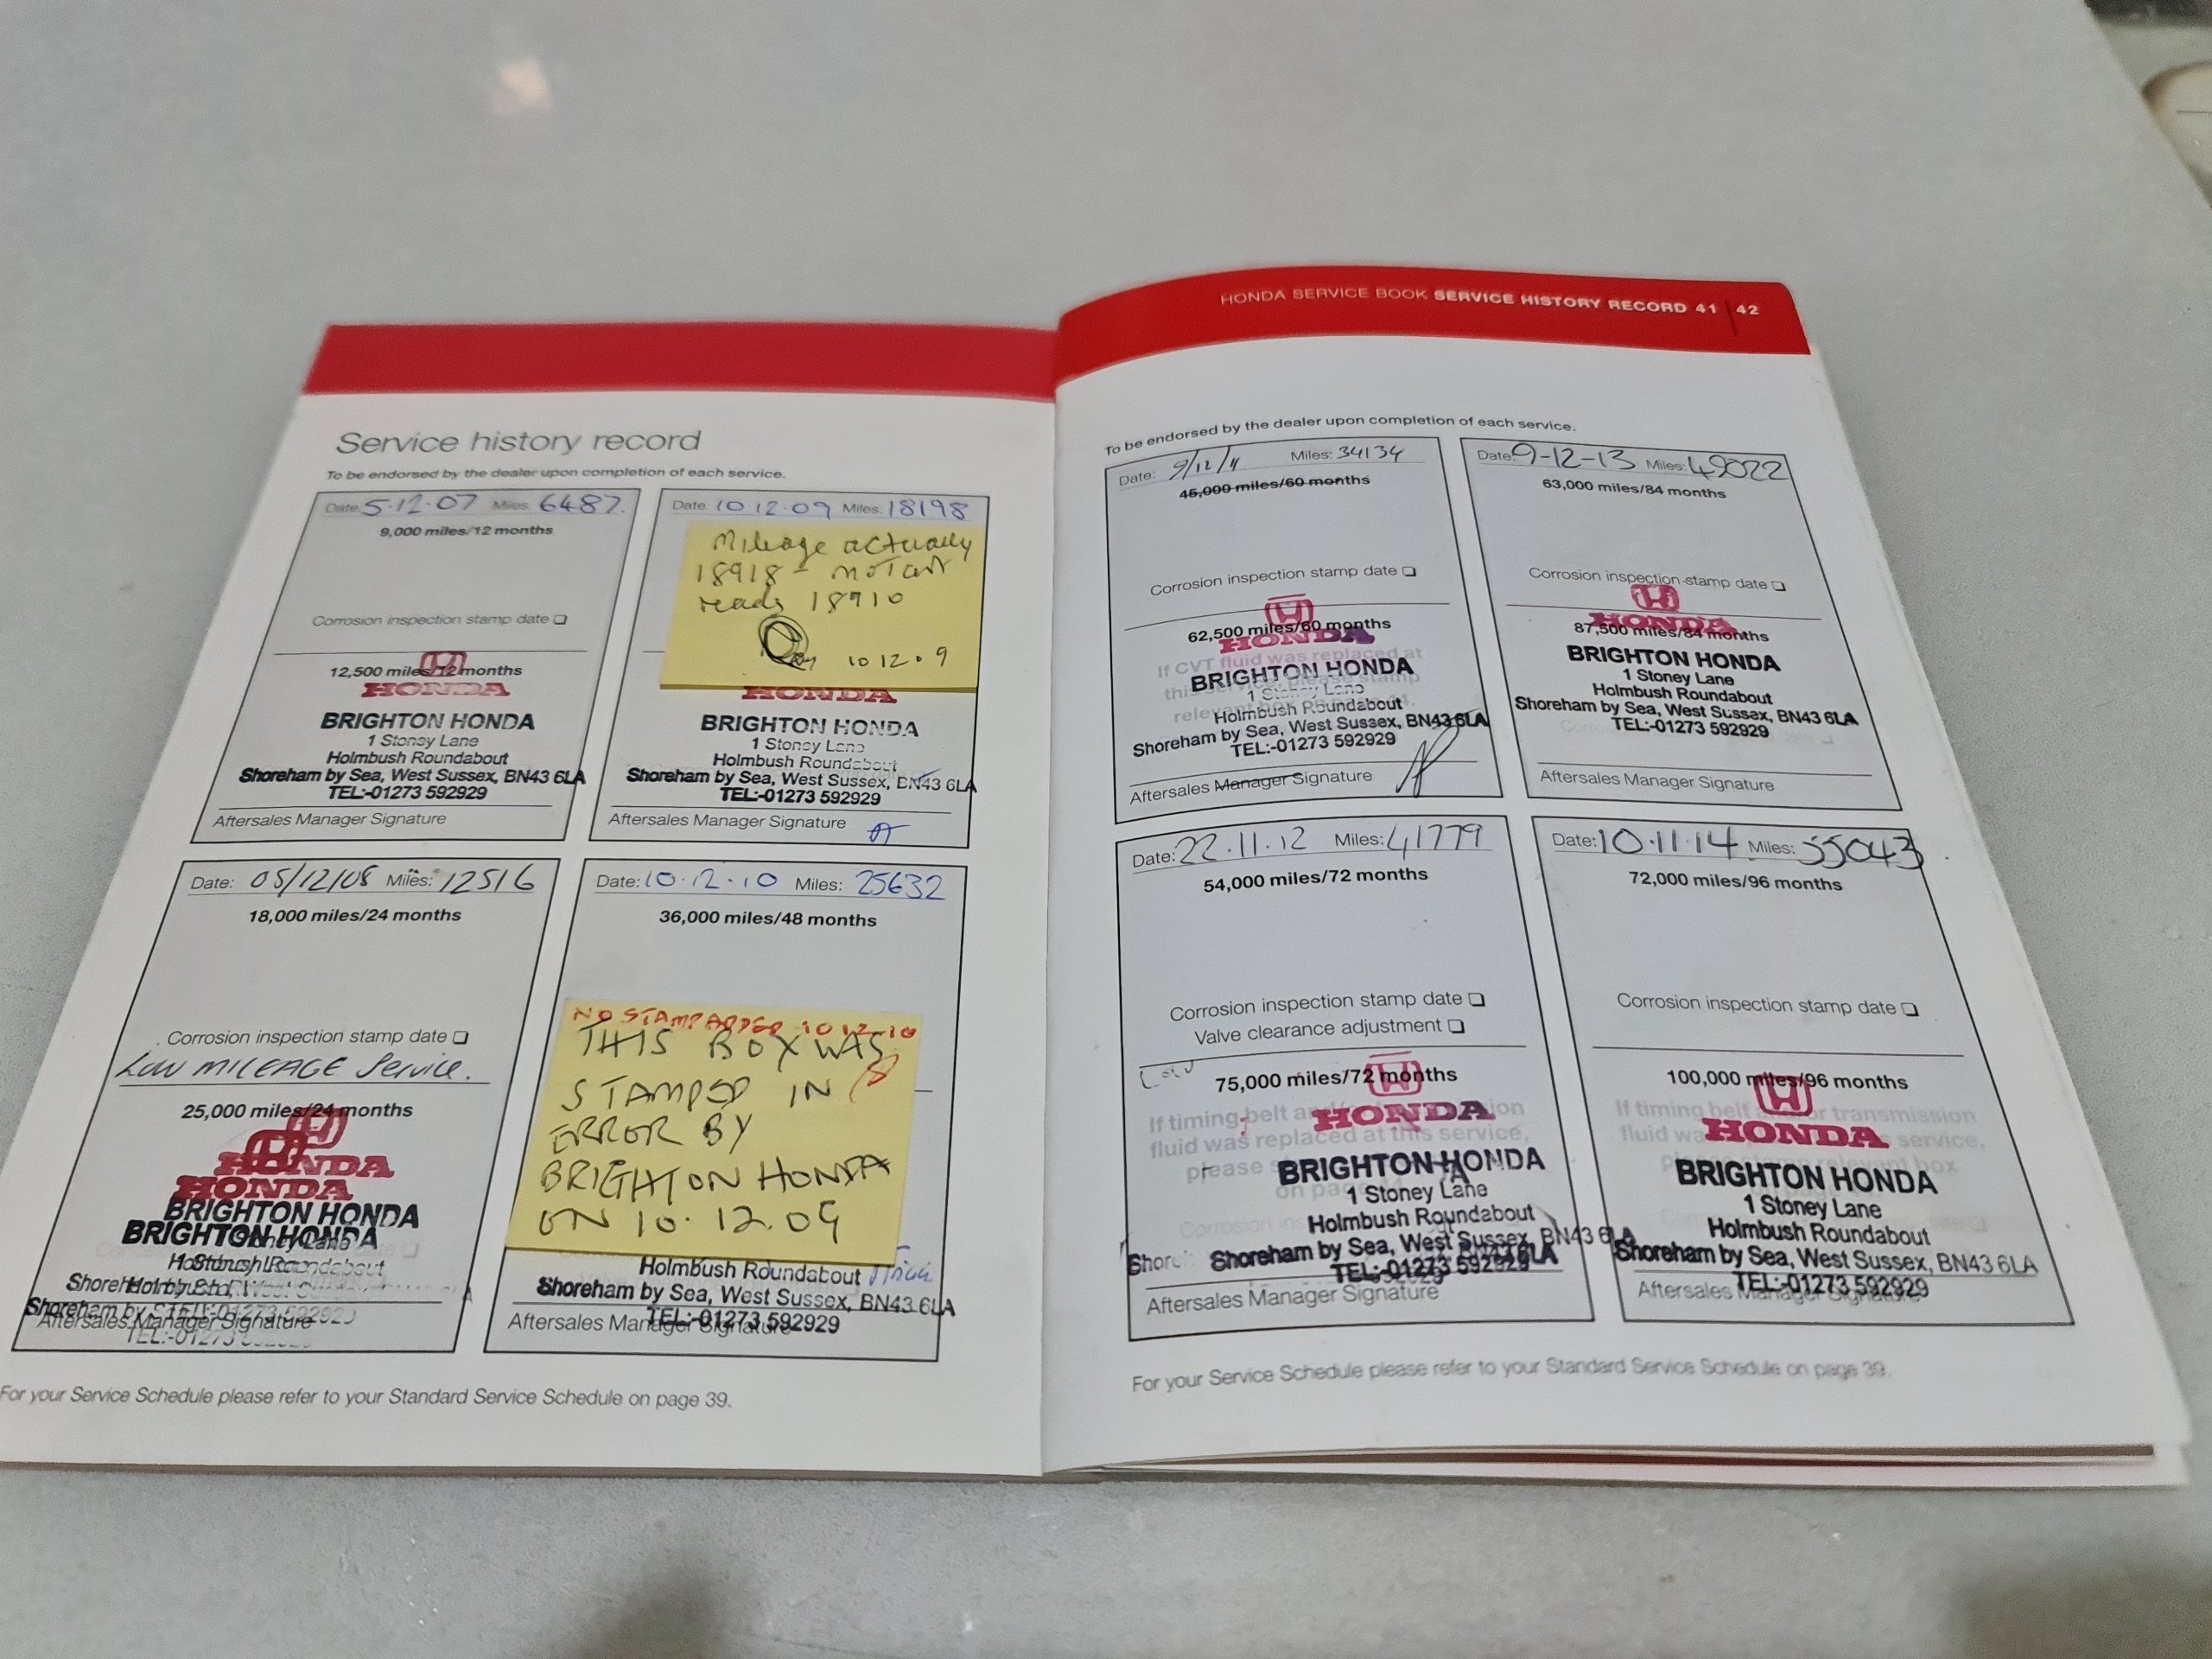 HONDA SERVICE BOOK SERVICE HISTORY RECORD 41 42
Service history record
To be endorsed by the dealer upon completion of each service.
Date: 5.12.07 Miles: 6487.
9,000 miles/12 months
Corrosion inspection stamp date
12,500 miles/12 months
HONDA
BRIGHTON HONDA
1 Stoney Lane
Holmbush Roundabout
Shoreham by Sea, West Sussex, BN43 6LA
TEL:-01273 592929
Aftersales Manager Signature
Date: 10.12.09 Miles: 18198
Mileage actually
18918 -
reads 18910
10 12.9
HONDA
BRIGHTON HONDA
1 Stoney Lane
Holmbush Roundabout
Shoreham by Sea, West Sussex, BN43 6LA
TEL:-01273 592929
Aftersales Manager Signature
Date: 05/12/08 Miles: 12516
18,000 miles/24 months
Corrosion inspection stamp date
LOW MILEAGE Service.
25,000 miles/24 months
HONDA
HONDA
BRIGHTON HONDA
BRIGHTON HONDA
Aftersales Manager Signature
Date: 10.12.10 Miles: 25632
36,000 miles/48 months
NO STAMP ADDED 10 12-10
THIS BOX WAS
STAMPED IN
ERROR BY
BRIGHTON HONDA
ON 10.12.09
Holmbush Roundabout
Shoreham by Sea, West Sussex, BN43 6LA
TEL:-01273 592929
Aftersales Manager Signature
For your Service Schedule please refer to your Standard Service Schedule on page 39.
To be endorsed by the dealer upon completion of each service.
Date: 9/12/11 Miles: 34134
45,000 miles/60 months
Corrosion inspection stamp date
62,500 miles/60 months
HONDA
If CVT fluid was replaced at
BRIGHTON HONDA
1 Stoney Lane
Holmbush Roundabout
Shoreham by Sea, West Sussex, BN43 6LA
TEL:-01273 592929
Aftersales Manager Signature
Date: 9-12-13 Miles: 49022
63,000 miles/84 months
Corrosion inspection stamp date
HONDA
87,500 miles/84 months
BRIGHTON HONDA
1 Stoney Lane
Holmbush Roundabout
Shoreham by Sea, West Sussex, BN43 6LA
TEL:-01273 592929
Aftersales Manager Signature
Date: 22.11.12 Miles: 41779
54,000 miles/72 months
Corrosion inspection stamp date
Valve clearance adjustment
75,000 miles/72 months
HONDA
If timing belt
fluid was replaced at this service,
please
BRIGHTON HONDA
on page
1 Stoney Lane
Holmbush Roundabout
Shoreham by Sea, West Sussex, BN43 6LA
TEL:-01273 592929
Aftersales Manager Signature
Date: 10.11.14 Miles: 55043
72,000 miles/96 months
Corrosion inspection stamp date
100,000 miles/96 months
If timing belt or transmission
HONDA
fluid service,
BRIGHTON HONDA
1 Stoney Lane
Holmbush Roundabout
Shoreham by Sea, West Sussex, BN43 6LA
TEL:-01273 592929
Aftersales Manager Signature
For your Service Schedule please refer to your Standard Service Schedule on page 39.